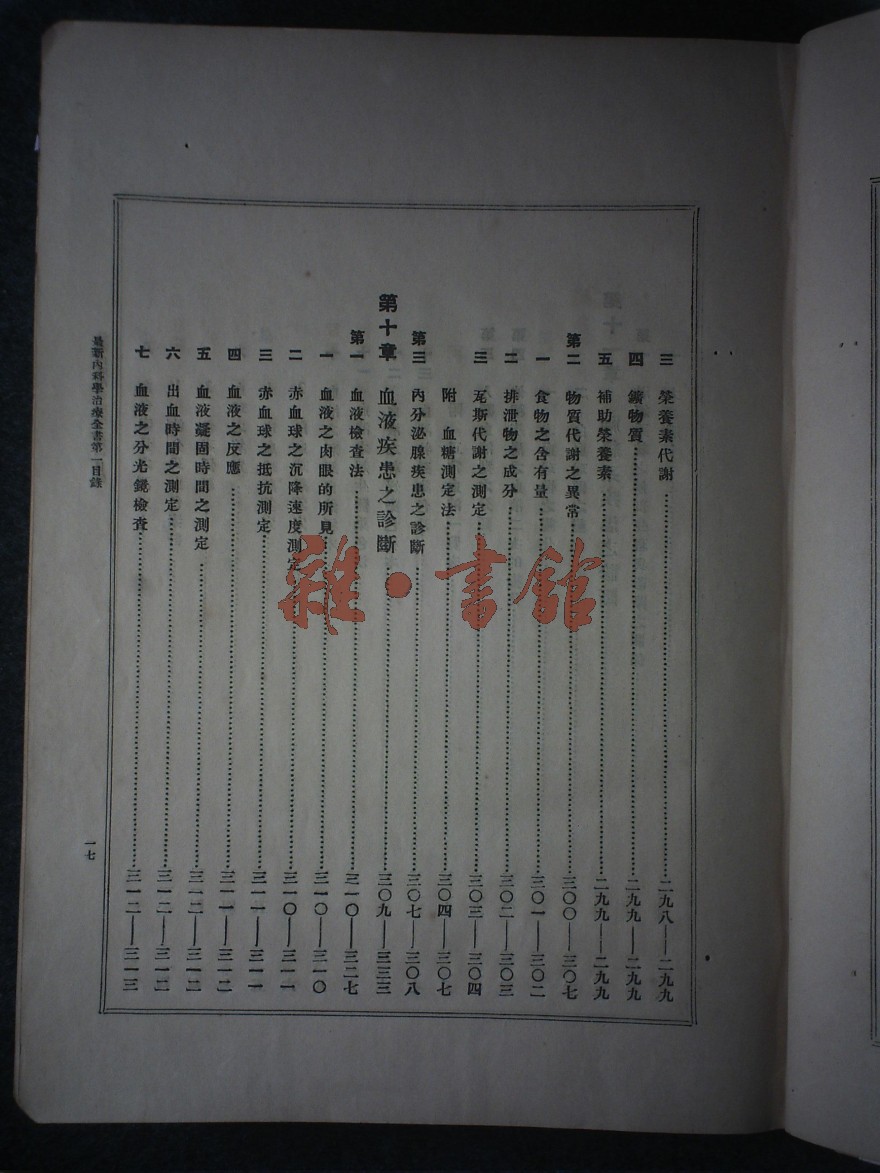 三 榮養素代謝……二九八——二九九
四 鑛物質……二九九——二九九
五 補助榮養素……二九九——二九九
第二 物質代謝之異常……三〇〇——三〇七
一 食物之含有量……三〇一——三〇二
二 排泄物之成分……三〇二——三〇三
三 瓦斯代謝之測定……三〇三——三〇四
附 血糖測定法……三〇四——三〇七
第三 內分泌腺疾患之診斷……三〇七——三〇八
第十章 血液疾患之診斷……三〇九——三三三
第一 血液檢查法……三一〇——三二七
一 血液之肉眼的所見……三一〇——三一〇
二 赤血球之沉降速度測定……三一〇——三一一
三 赤血球之抵抗測定……三一一——三一一
四 血液之反應……三一一——三一二
五 血液凝固時間之測定……三一二——三一二
六 出血時間之測定……三一二——三一二
七 血液之分光鏡檢查……三一二——三一三
最新內科學治療全書第一目錄
一七
雜·書館